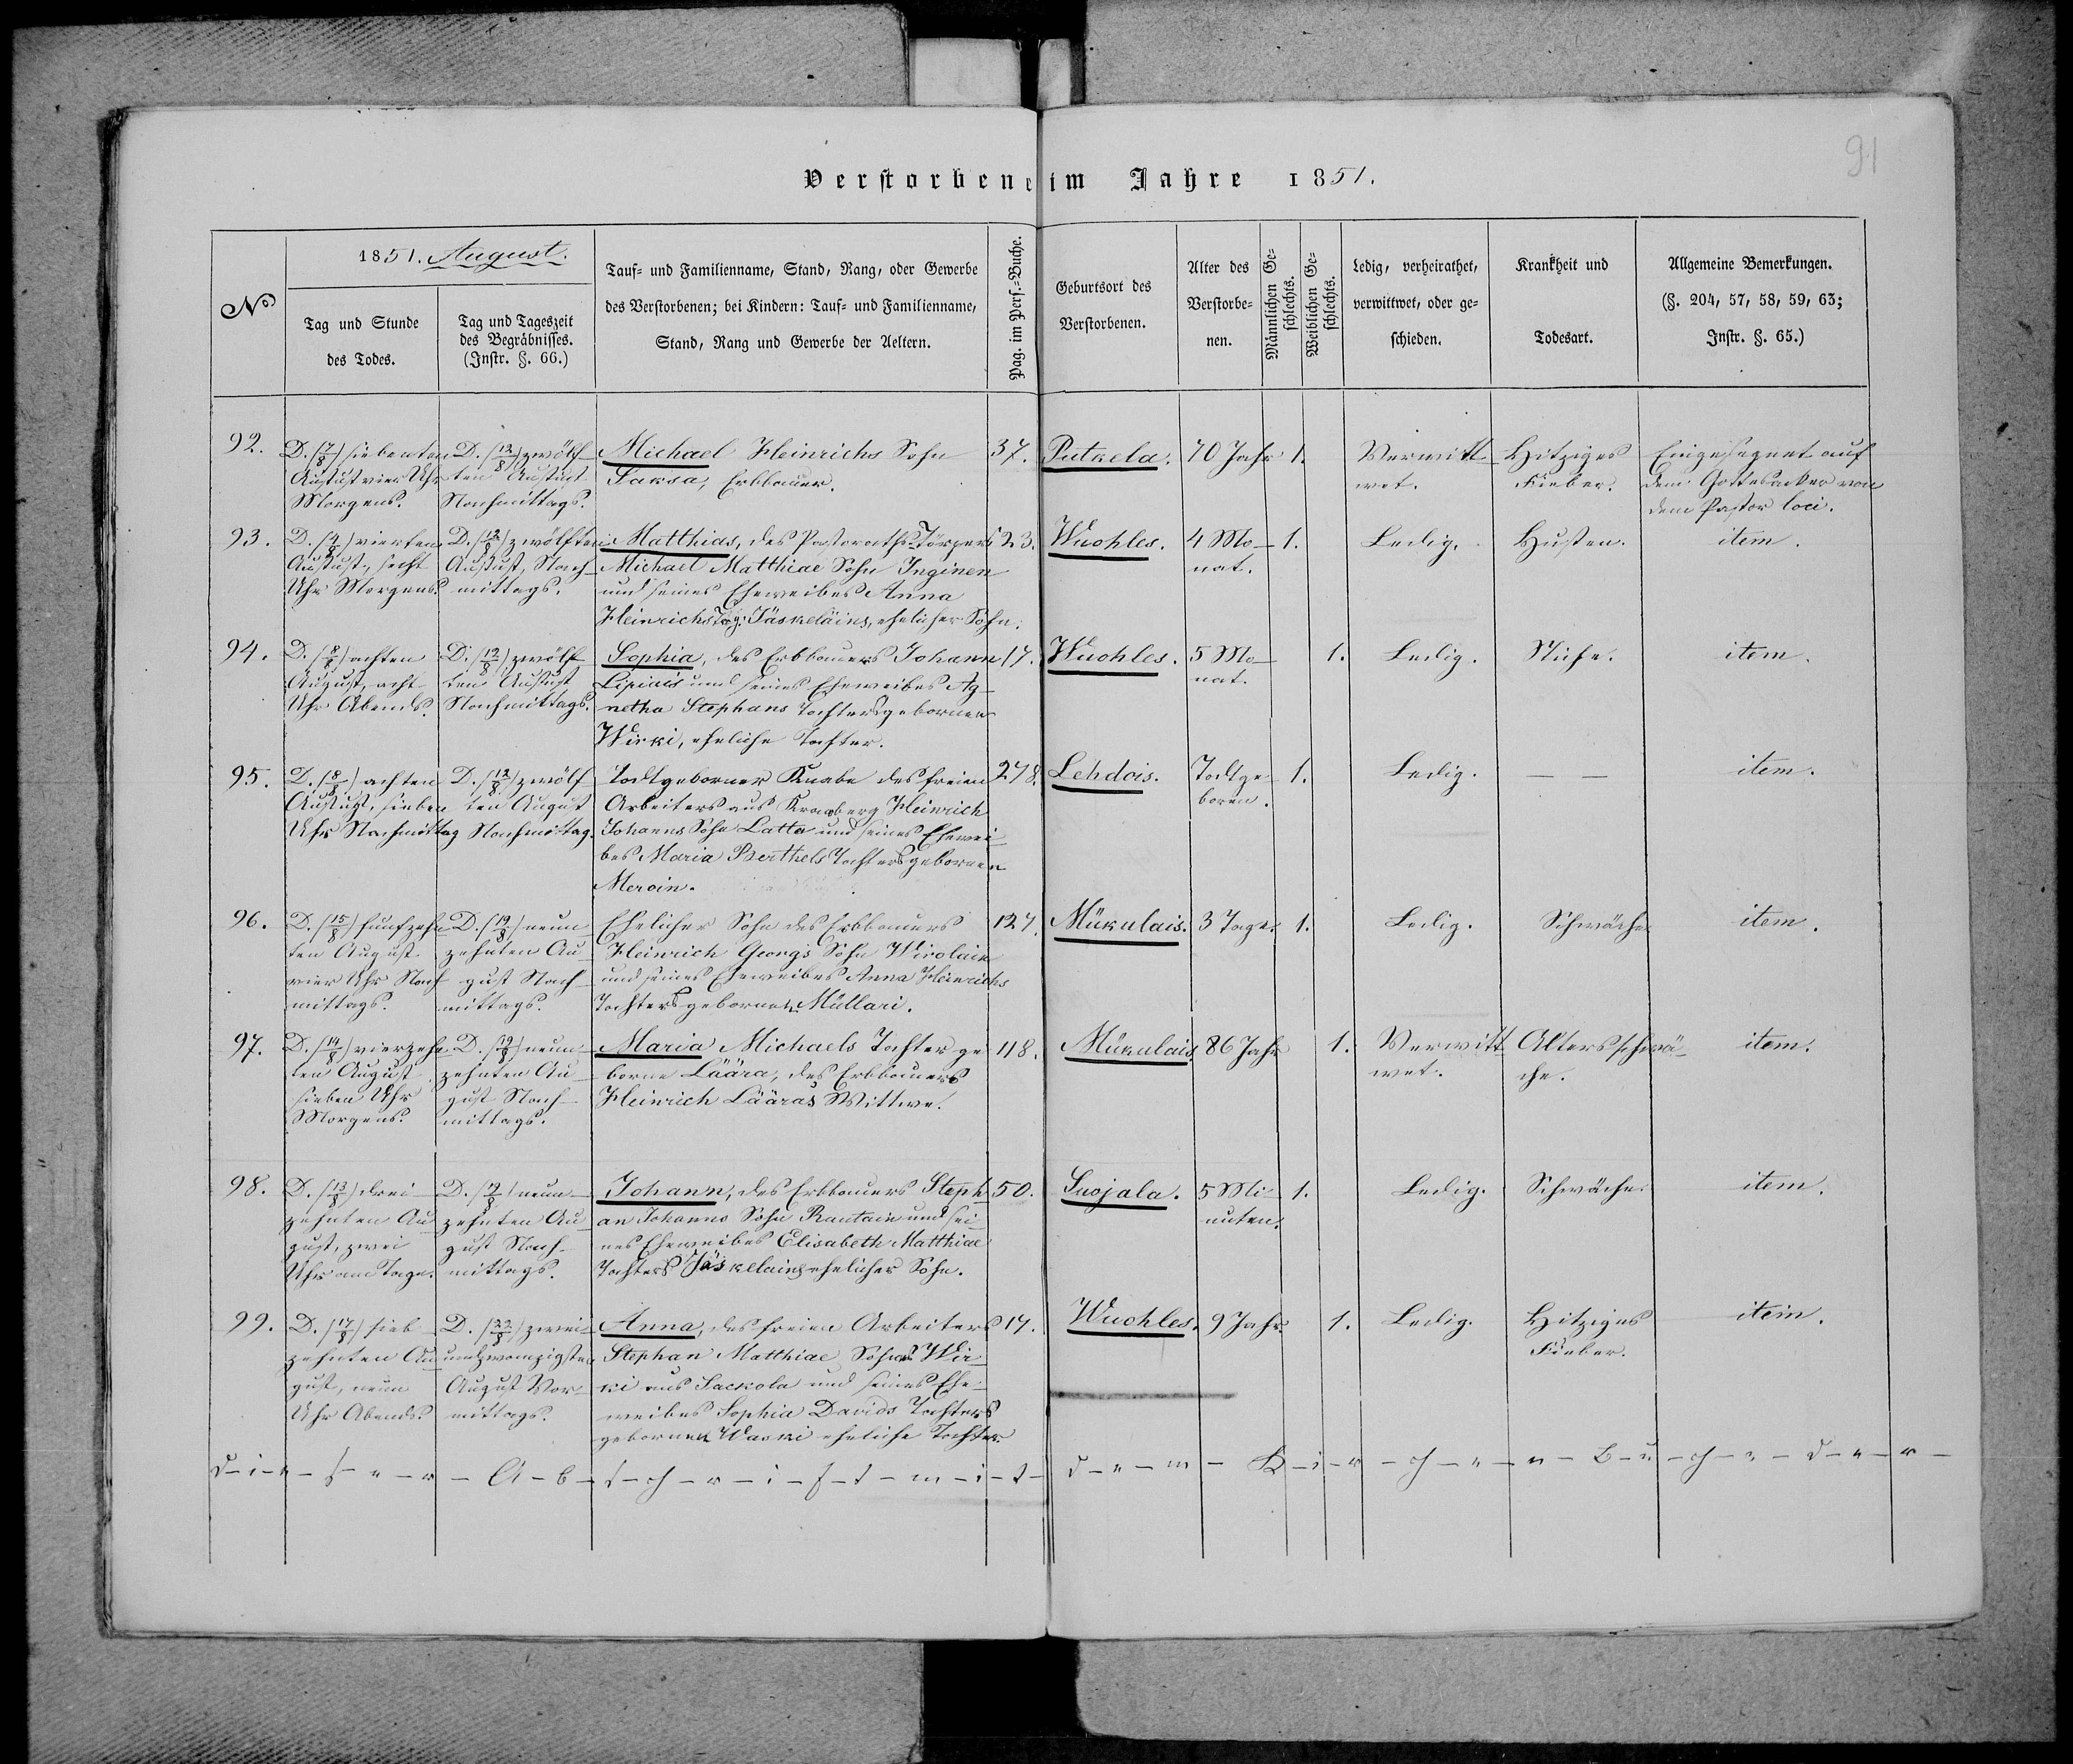 91
Verstorbene im Jahre 1851.
No
1851. August.
Tag und Stunde
des Todes.
Tag und Tageszeit
des Begräbnisses.
(Instr. §. 66.)
Tauf- und Familienname, Stand, Rang, oder Gewerbe
des Verstorbenen; bei Kindern: Tauf- und Familienname,
Stand, Rang und Gewerbe der Aeltern.
Pag. im Pers.-Buche.
Geburtsort des
Verstorbenen.
Alter des
Verstorbe-
nen.
Männlichen Ge-
schlechts.
Weiblichen Ge-
schlechts.
Ledig, verheirathet,
verwittwet, oder ge-
schieden.
Krankheit und
Todesart.
Allgemeine Bemerkungen.
(§. 204, 57, 58, 59, 63;
Instr. §. 65.)
92.
D. (7/8) siebenten
August vier Uhr
Morgens.
D. (12/8) zwölf
ten August
Nachmittags.
Michael Heinrichs Sohn
Saksa, Erbbauer.
37.
Putkela.
70 Jahr
1.
Verwitt
wet.
Hitziges
Fieber.
Eingesegnet auf
dem Gottesacker von
dem Pastor loci.
93.
D. (4/8) vierten
August, sechs
Uhr Morgens.
D. (12/8) zwölften
August, Nach-
mittags.
Matthias, des Pastoraths-Törpers
Michael Matthiae Sohn Inginen
und seines Eheweibes Anna
Heinrichs Jäskeläins, ehelicher Sohn.
23.
Wuohles.
4 Mo-
nat.
1.
Ledig.
Husten.
item.
94.
D. (8/8) achten
August, acht
Uhr Abends.
D. (12/8) zwölf-
ten August
Nachmittags.
Sophia, des Erbbauers Johann
Lipiais und seines Eheweibes Ag-
netha Stephans Tochters gebornen
Wirki, eheliche Tochter.
17.
Wuohles.
5 Mo-
nat.
1.
Ledig.
item.
95.
D. (8/8) achten
August, sieben
Uhr Nachmittag
D. (12/8) zwölf
ten August
Nachmittag.
Todtgeborner Knabe des freien
Arbeiters aus Kronberg Heinrich
Johanns Sohn Latta und seines Ehewei
bes Maria Berthels Tochters gebornen
Meroin.
278.
Lehdois.
Todtge-
boren.
1.
Ledig.
— —
item.
96.
D. (15/8) funfzehn
ten August
vier Uhr Nach
mittags.
D. (19/8) neun
zehnten Au-
gust Nach-
mittags.
Ehelicher Sohn des Erbbauers
Heinrich Georgs Sohn Wirolain
und seines Eheweibes Anna Heinrichs
Tochters gebornen Müllari.
127.
Mükulais.
3 Tage.
1.
Ledig.
Schwäche
item.
97.
D. (14/8) vierzehn
ten August
sieben Uhr
Morgens.
D. (19/8) neun-
zehnten Au-
gust Nach-
mittags.
Maria Michaels Tochter ge
borne Läära, des Erbbauers
Heinrich Lääras Wittwe.
118.
Mükulais
86 Jahr
1.
Verwitt
wet.
Altersschwä-
che.
item.
98.
D. (13/8) drei-
zehnten Au
gust, zwei
Uhr am Tage.
D. (19/8) neun-
zehnten Au-
gust Nach-
mittags.
Johann, des Erbbauers Steph
an Johanns Sohn Rautain und sei
nes Eheweibes Elisabeth Matthiae
Tochters Jäskelains ehelicher Sohn.
50.
Suojala.
5 Mi-
nuten.
1.
Ledig.
Schwäche.
item.
99.
D. (17/8) sieb-
zehnten Au
gust, neun
Uhr Abends.
D. (22/8) zwei-
undzwanzigsten
August Vor-
mittags.
Anna, des freien Arbeiters
Stephan Matthiae Sohnes Wir-
ki aus Sackola und seines Ehe-
weibes Sophia Davids Tochters
gebornen Waski eheliche Tochter
17.
Wuohles.
9 Jahr.
1.
Ledig.
Hitziges
Fieber.
item.
d-i-e-s-e-r-A-b-s-ch-r-i-f-t-m-i-t-d-e-m-K-i-r-ch-e-n-B-u-ch-e-d-e-r-